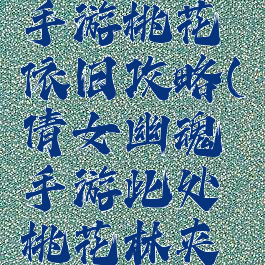 手游桃花
依旧攻略(
倩女幽魂
手游此处
桃花林夹